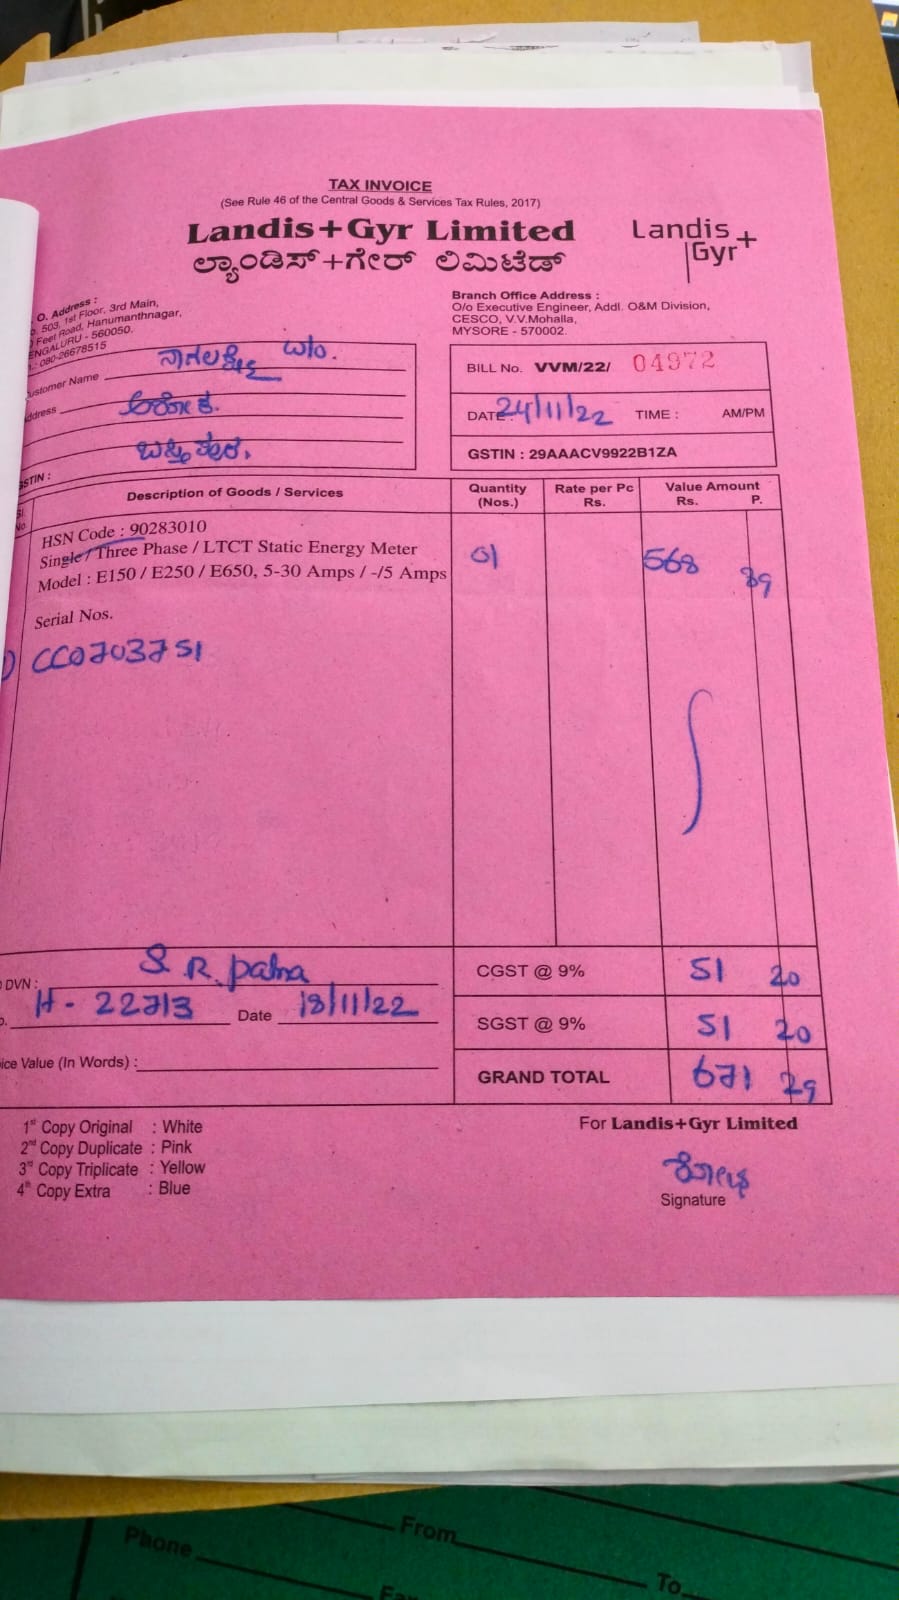 TAX INVOICE
(See Rule 46 of the Central Goods & Services Tax Rules, 2017)
Landis+Gyr Limited
ಲ್ಯಾಂಡಿಸ್+ಗೇರ್ ಲಿಮಿಟೆಡ್
Landis
Gyr+
. O. Address :
503, 1st Floor, 3rd Main,
Feet Road, Hanumanthnagar,
ENGALURU - 560050.
.: 080-26678515
Branch Office Address :
O/o Executive Engineer, Addl. O&M Division,
CESCO, V.V.Mohalla,
MYSORE - 570002.
ustomer Name ನಾಗಲಕ್ಷ್ಮಿ W/o.
ddress ಅಶೋಕ.
ಬಸ್ತಿಪುರ.
STIN :
BILL No. VVM/22/ 04972
DATE : 24/11/22 TIME : AM/PM
GSTIN : 29AAACV9922B1ZA
Sl. No. Description of Goods / Services Quantity (Nos.) Rate per Pc Rs. Value Amount Rs. P.
HSN Code : 90283010
Single / Three Phase / LTCT Static Energy Meter
Model : E150 / E250 / E650, 5-30 Amps / -/5 Amps
01 568 89
Serial Nos.
CC0703751
DVN : S. R. patna
H - 22713 Date 18/11/22
ice Value (In Words) :
CGST @ 9% 51 20
SGST @ 9% 51 20
GRAND TOTAL 671 29
1st Copy Original : White
2nd Copy Duplicate : Pink
3rd Copy Triplicate : Yellow
4th Copy Extra : Blue
For Landis+Gyr Limited
Signature
Phone
From
To